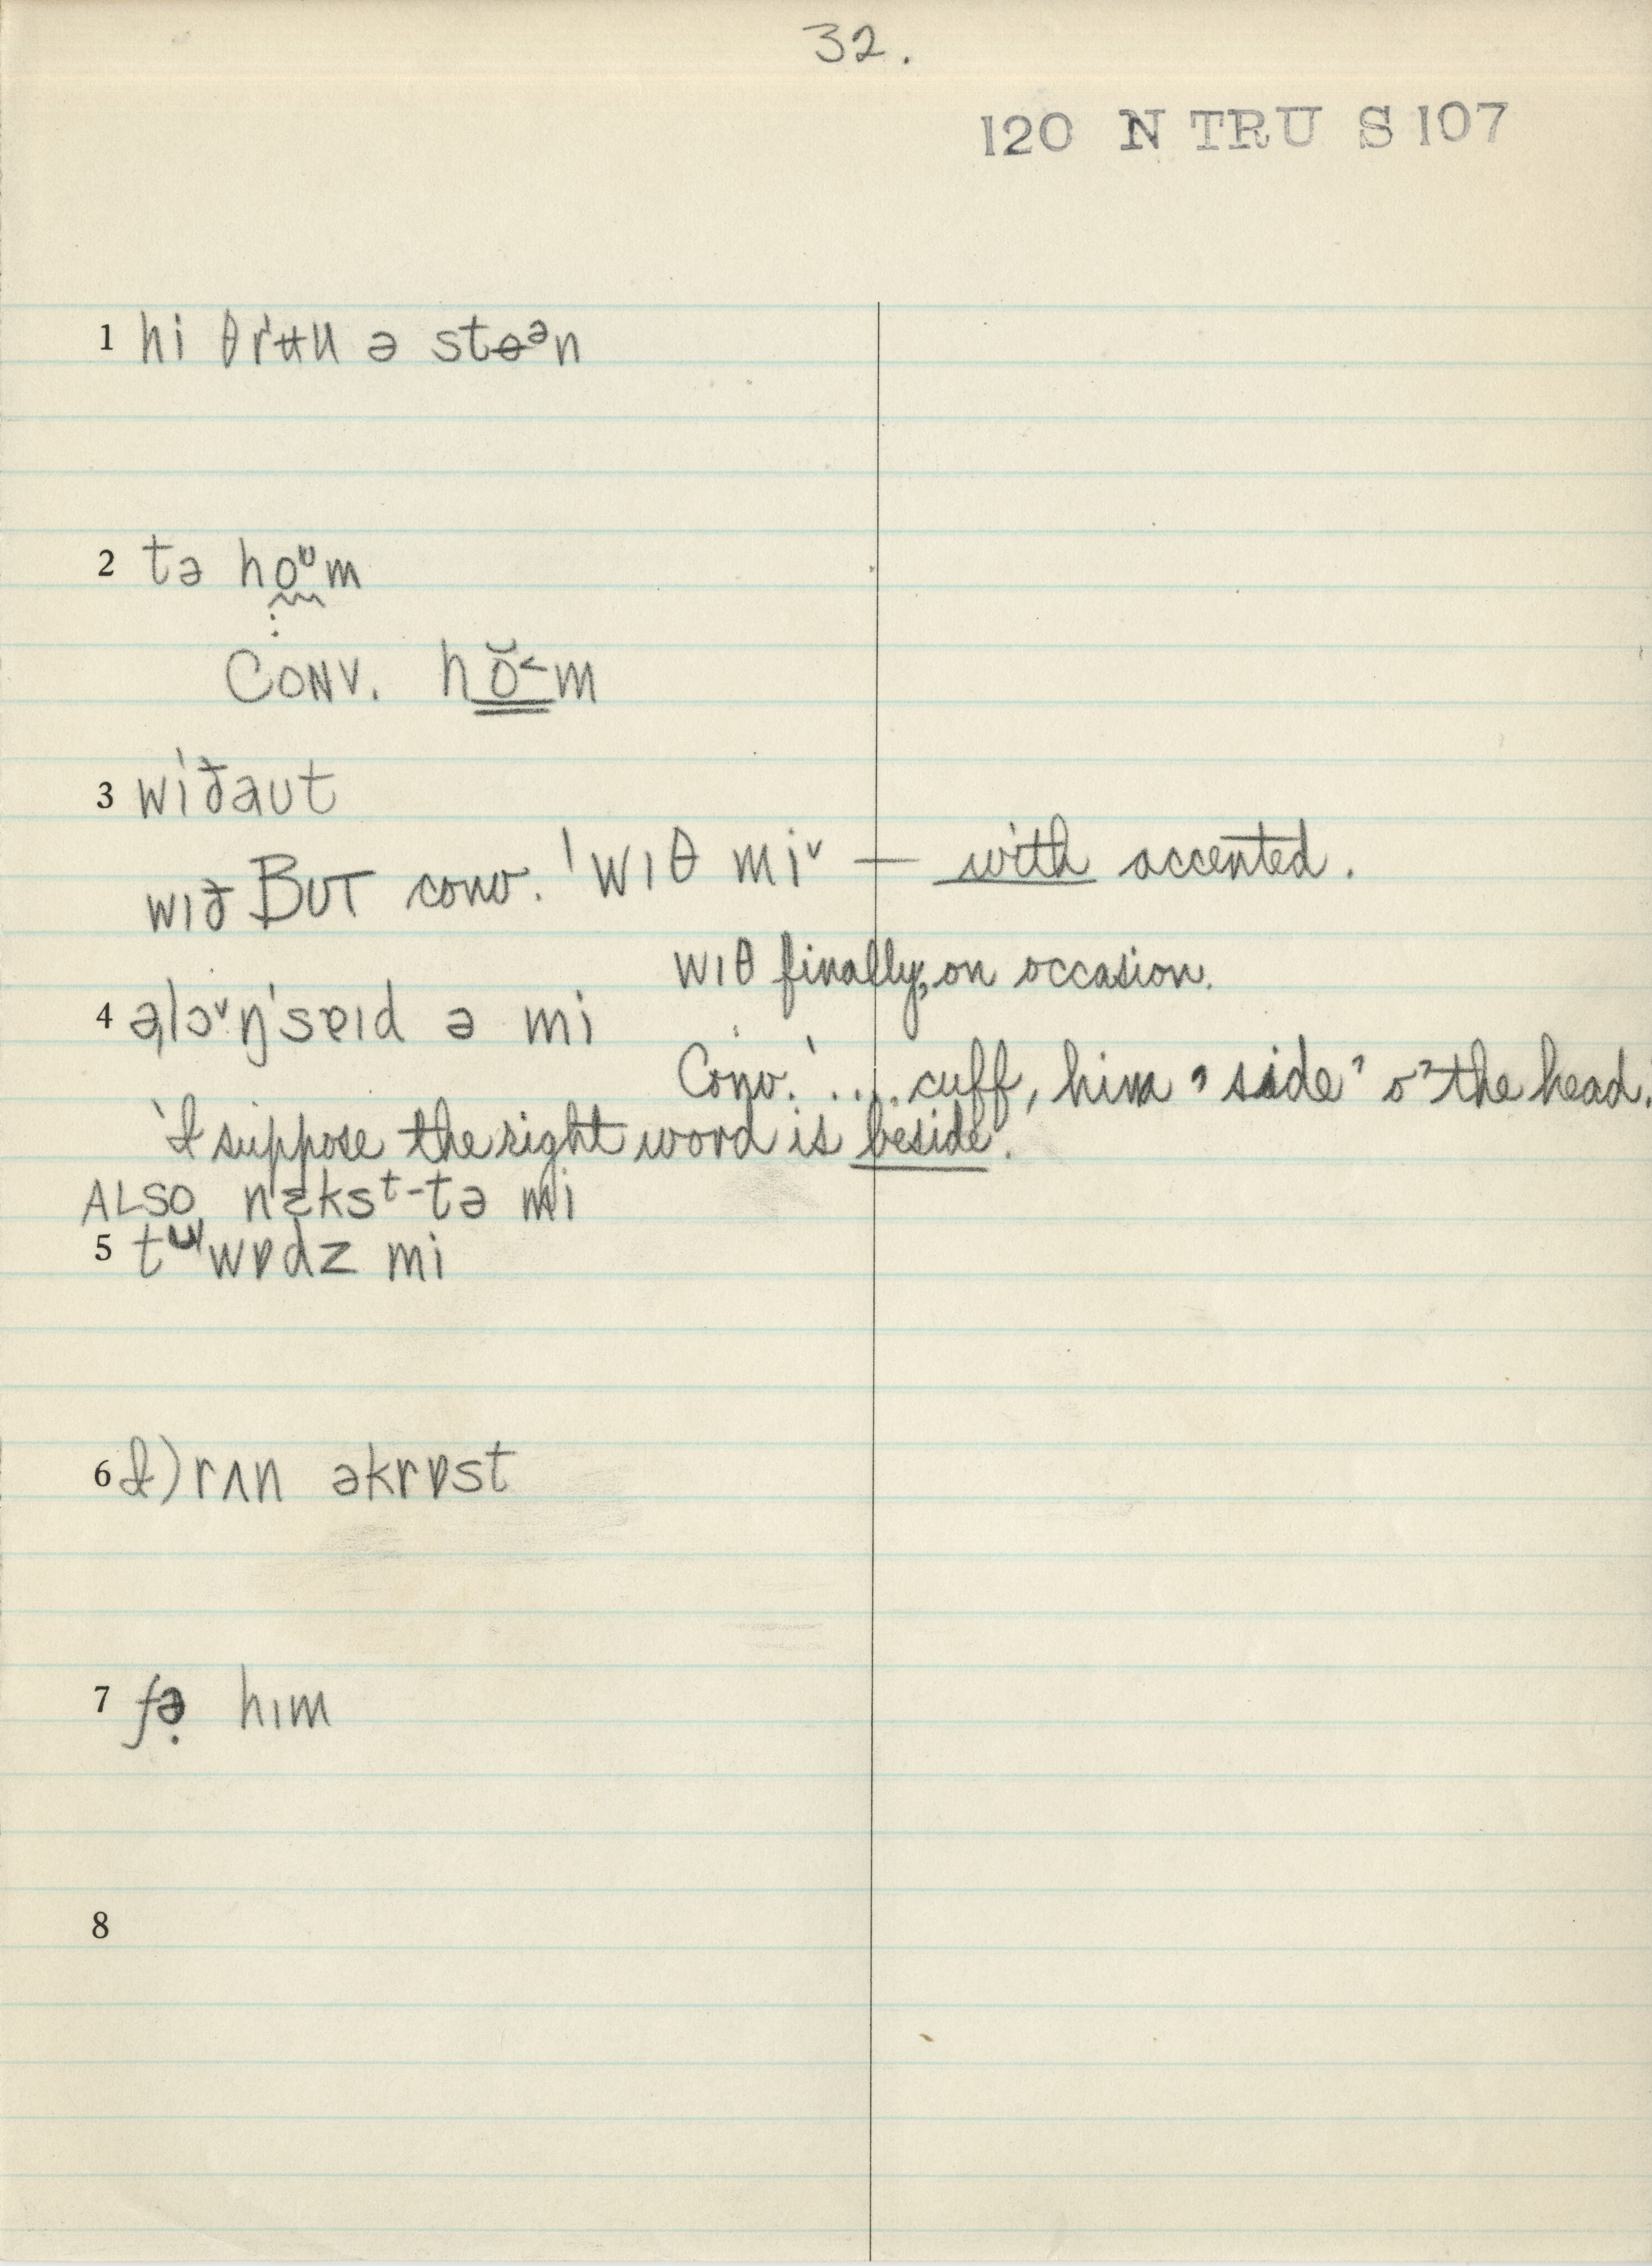 32.
120 N TRU S 107
1 hi θrʉu ə stɵᵊn
2 tə hoᶷm
CONV. hŏ˂m
3 wiðaut
wɪð BUT conv. ˈwɪθ miˇ — with accented.
wɪθ finally, on occasion.
4 əˌlɔˇŋˈsɐɪd ə mi
Conv. '.... cuff, him 'side' o' the head.
'I suppose the right word is beside'.
ALSO nɛksᵗ-tə mi
5 tᵚwɒdz mi
6 I) rʌn əkrɒst
7 fə̣ hɪm
8